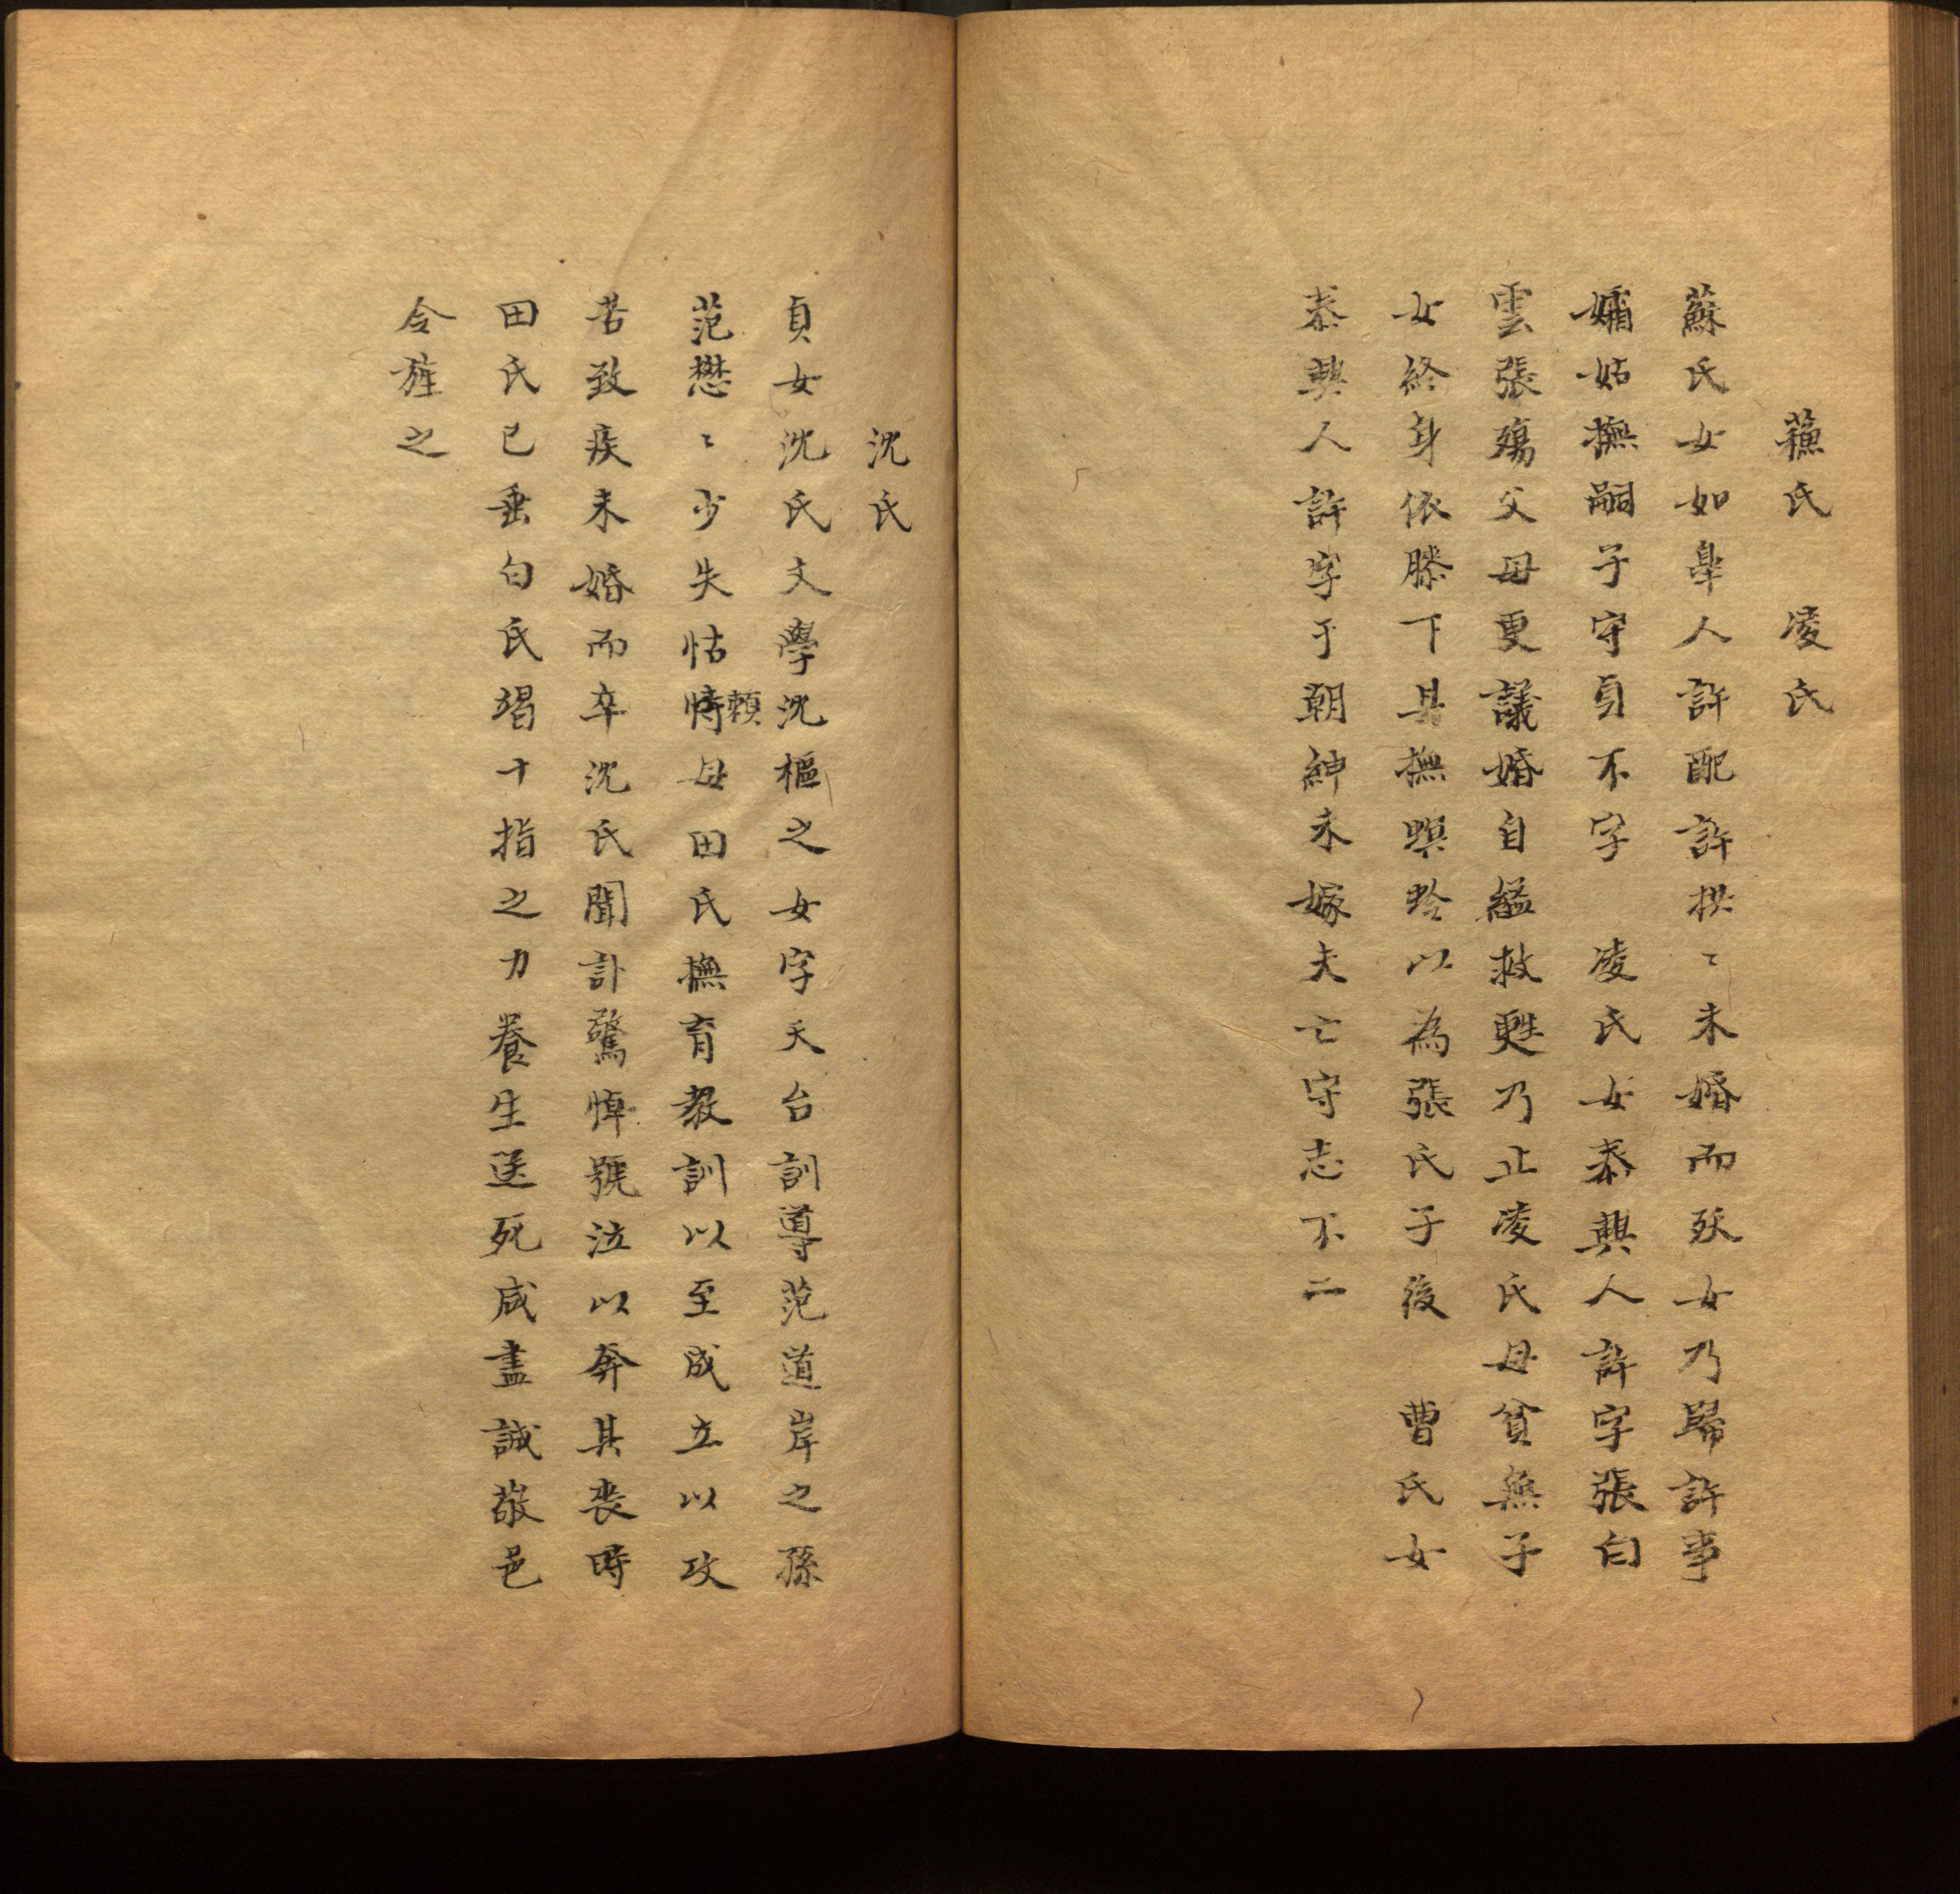 蘓氏　凌氏
蘇氏女如臯人許配許拱〻未婚而殀女乃歸許事
孀姑撫嗣子守貞不字　凌氏女泰興人許字張白
雲張殤父母更議婚自縊救甦乃止凌氏母貧無子
女終身依膝下且撫螟蛉以為張氏子後　曹氏女
泰興人許字于朝紳未嫁夫亡守志不二
沈氏
貞女沈氏文學沈樞之女字天台訓導范道岸之孫
范懋〻少失怙恃賴母田氏撫育教訓以至成立以攻
苦致疾未婚而卒沈氏聞訃驚悼號泣以奔其喪時
田氏已垂白氏竭十指之力養生送死咸盡誠敬邑
令旌之